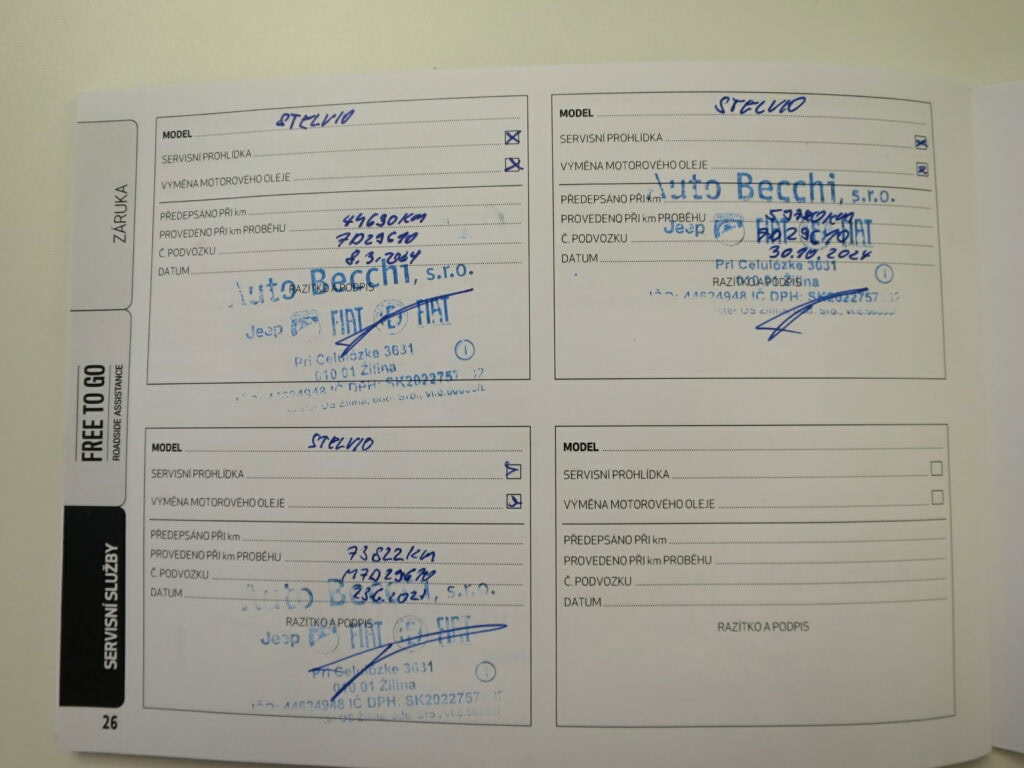 ZÁRUKA
FREE TO GO
ROADSIDE ASSISTANCE
SERVISNÍ SLUŽBY
26
MODEL STELVIO
SERVISNÍ PROHLÍDKA
VÝMĚNA MOTOROVÉHO OLEJE
PŘEDEPSÁNO PŘI km
PROVEDENO PŘI km PROBĚHU 44690KM
Č. PODVOZKU 7D29610
DATUM 8.3.2024
RAZÍTKO A PODPIS
Auto Becchi, s.r.o.
Jeep FIAT FIAT
Pri Celulózke 3631
010 01 Žilina
44624948 IČ DPH: SK2022757
MODEL STELVIO
SERVISNÍ PROHLÍDKA
VÝMĚNA MOTOROVÉHO OLEJE
PŘEDEPSÁNO PŘI km
PROVEDENO PŘI km PROBĚHU
Č. PODVOZKU 7D29610
DATUM 30.10.2024
RAZÍTKO A PODPIS
Auto Becchi, s.r.o.
Jeep FIAT FIAT
Pri Celulózke 3631
010 01 Žilina
IČO: 44624948 IČ DPH: SK2022757
MODEL STELVIO
SERVISNÍ PROHLÍDKA
VÝMĚNA MOTOROVÉHO OLEJE
PŘEDEPSÁNO PŘI km
PROVEDENO PŘI km PROBĚHU 73822KM
Č. PODVOZKU M7D29610
DATUM
RAZÍTKO A PODPIS
Auto Becchi, s.r.o.
Jeep FIAT FIAT
Pri Celulózke 3631
010 01 Žilina
44624948 IČ DPH: SK2022757
MODEL
SERVISNÍ PROHLÍDKA
VÝMĚNA MOTOROVÉHO OLEJE
PŘEDEPSÁNO PŘI km
PROVEDENO PŘI km PROBĚHU
Č. PODVOZKU
DATUM
RAZÍTKO A PODPIS